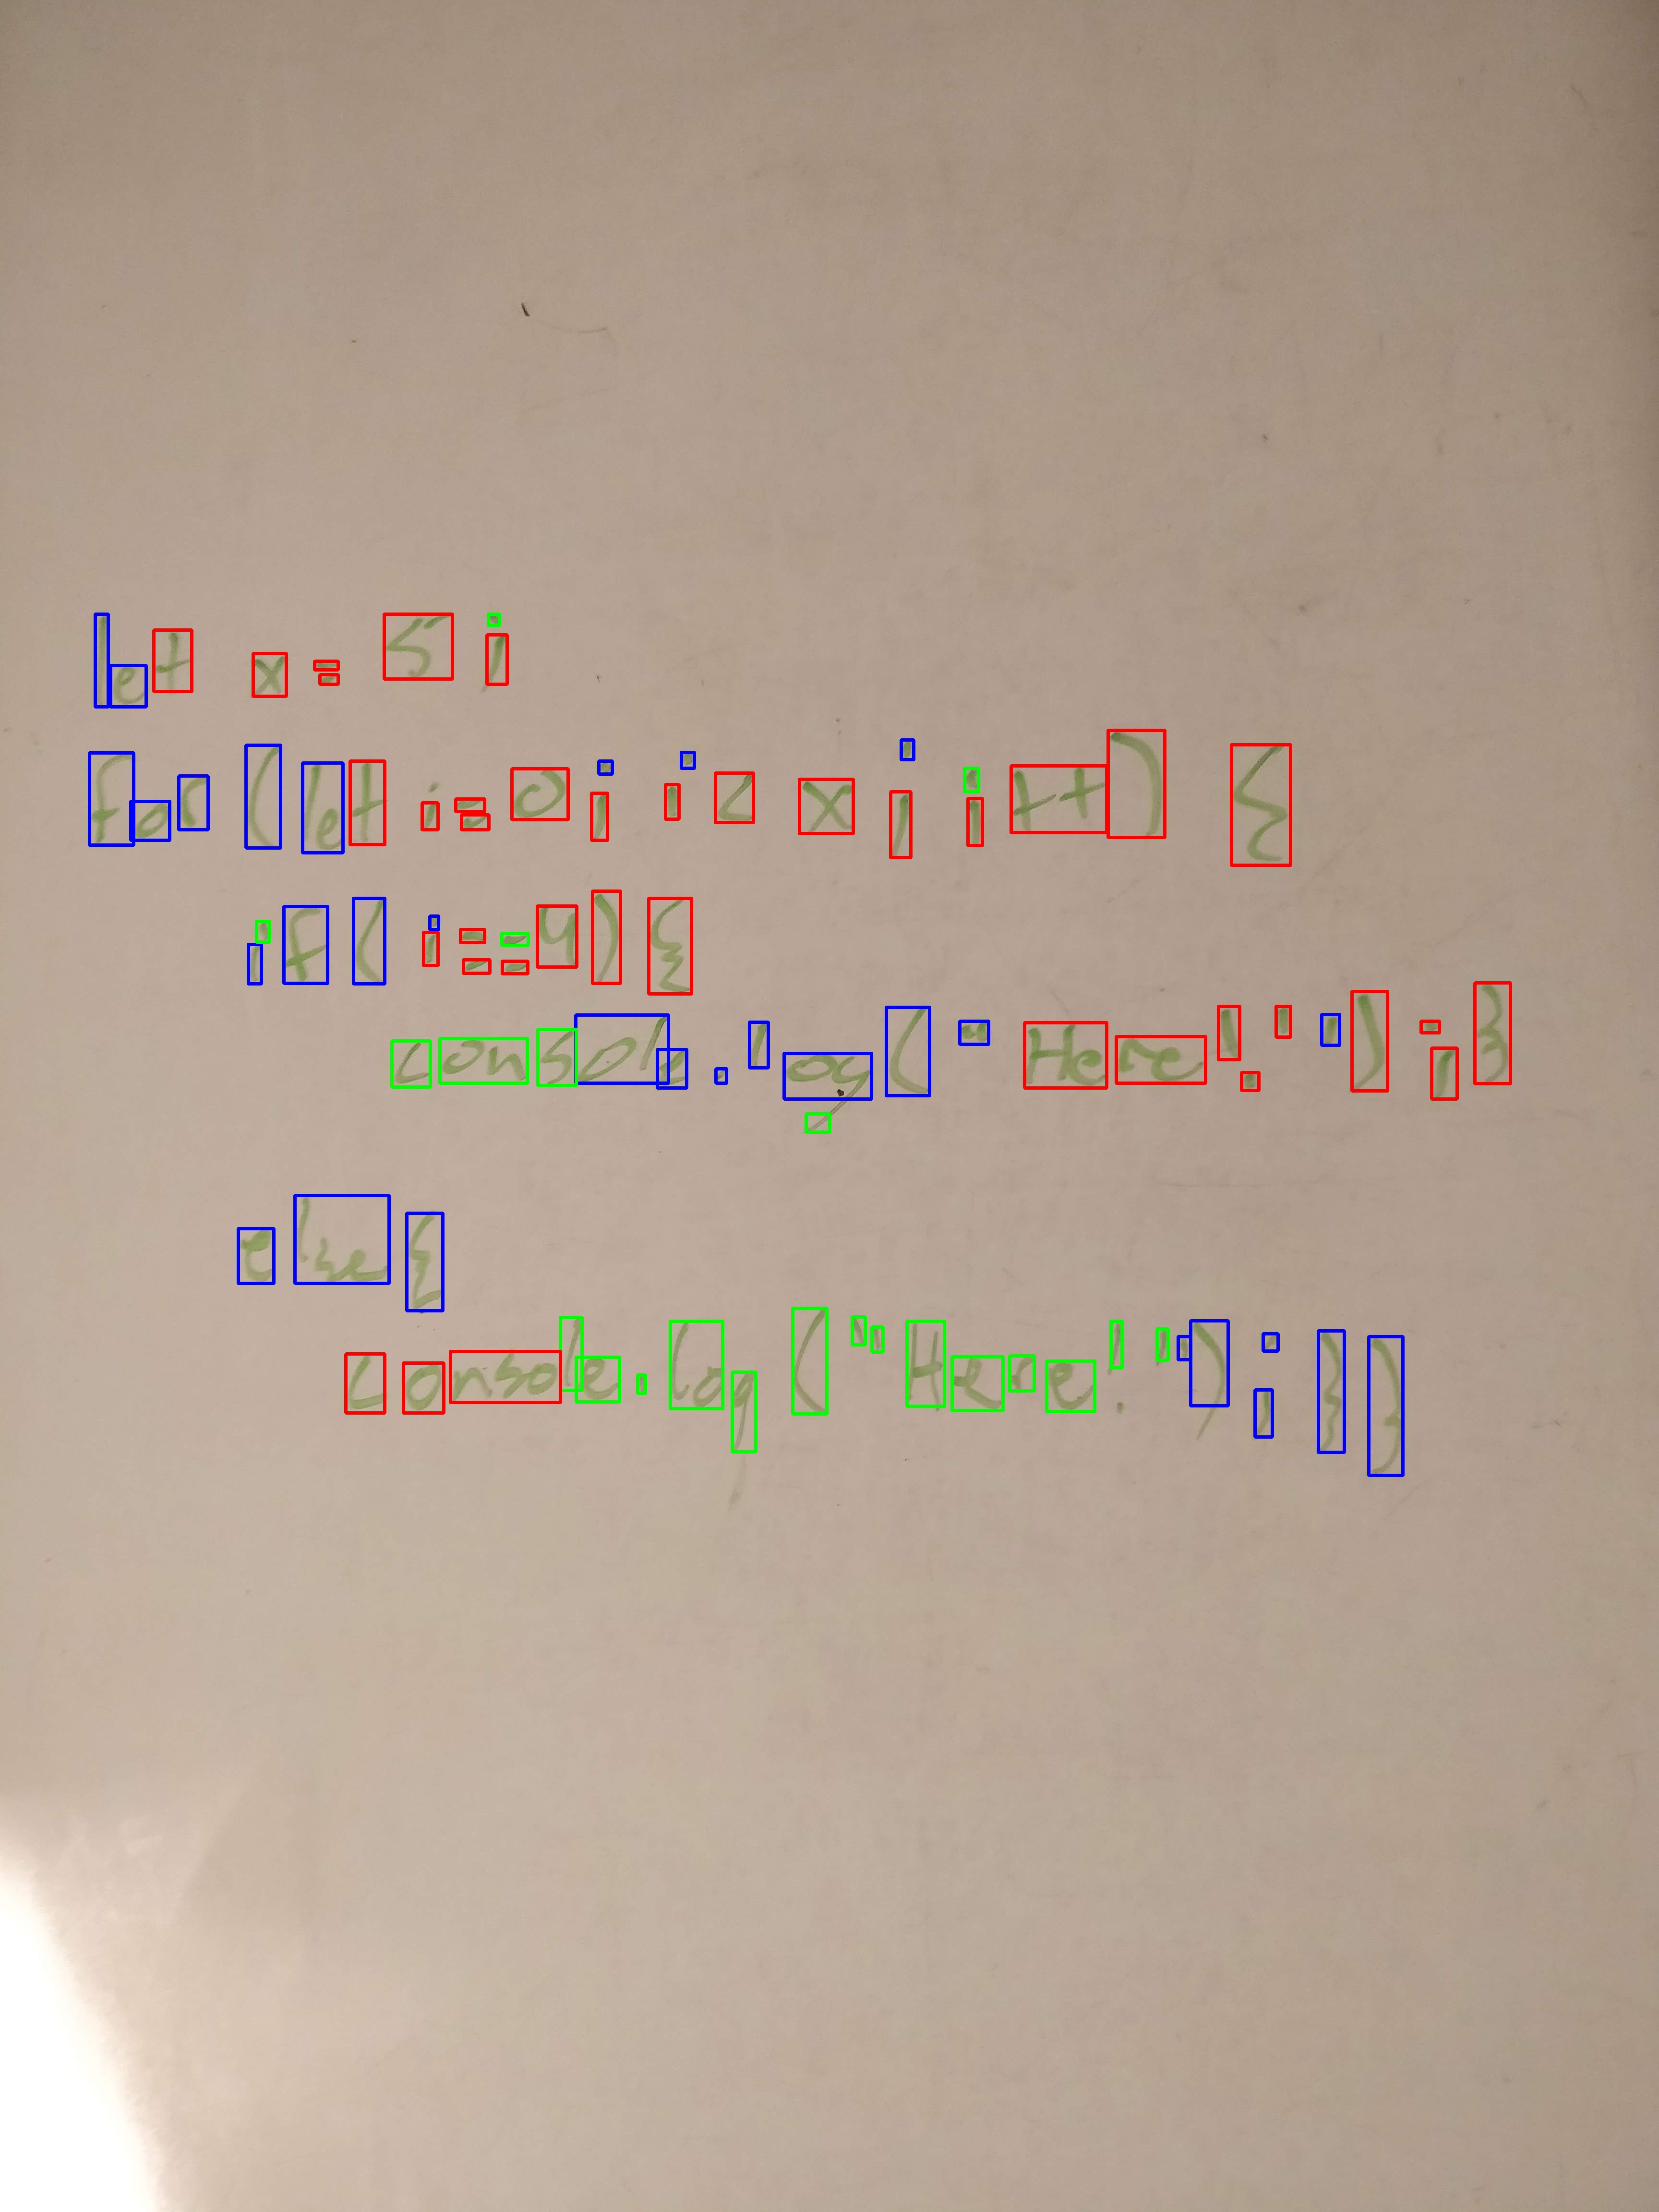 let x = 5;
for (let i=0; i < x; i++) {
if (i==4) {
console.log("Here!");}
else {
console.log("Here!");}}